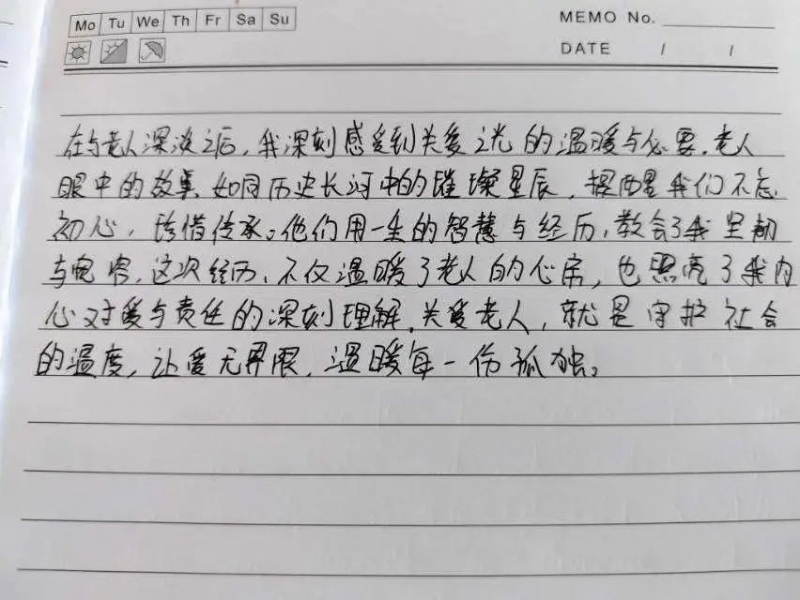 Mo Tu We Th Fr Sa Su
MEMO No.
DATE / /
在与老人深谈之后，我深刻感受到关爱之光的温暖与必要。老人
眼中的故事，如同历史长河中的璀璨星辰，提醒我们不忘
初心，珍惜传承。他们用一生的智慧与经历，教会了我坚韧
与宽容。这次经历，不仅温暖了老人的心房，也照亮了我内
心对爱与责任的深刻理解。关爱老人，就是守护社会
的温度，让爱无界限，温暖每一份孤独。